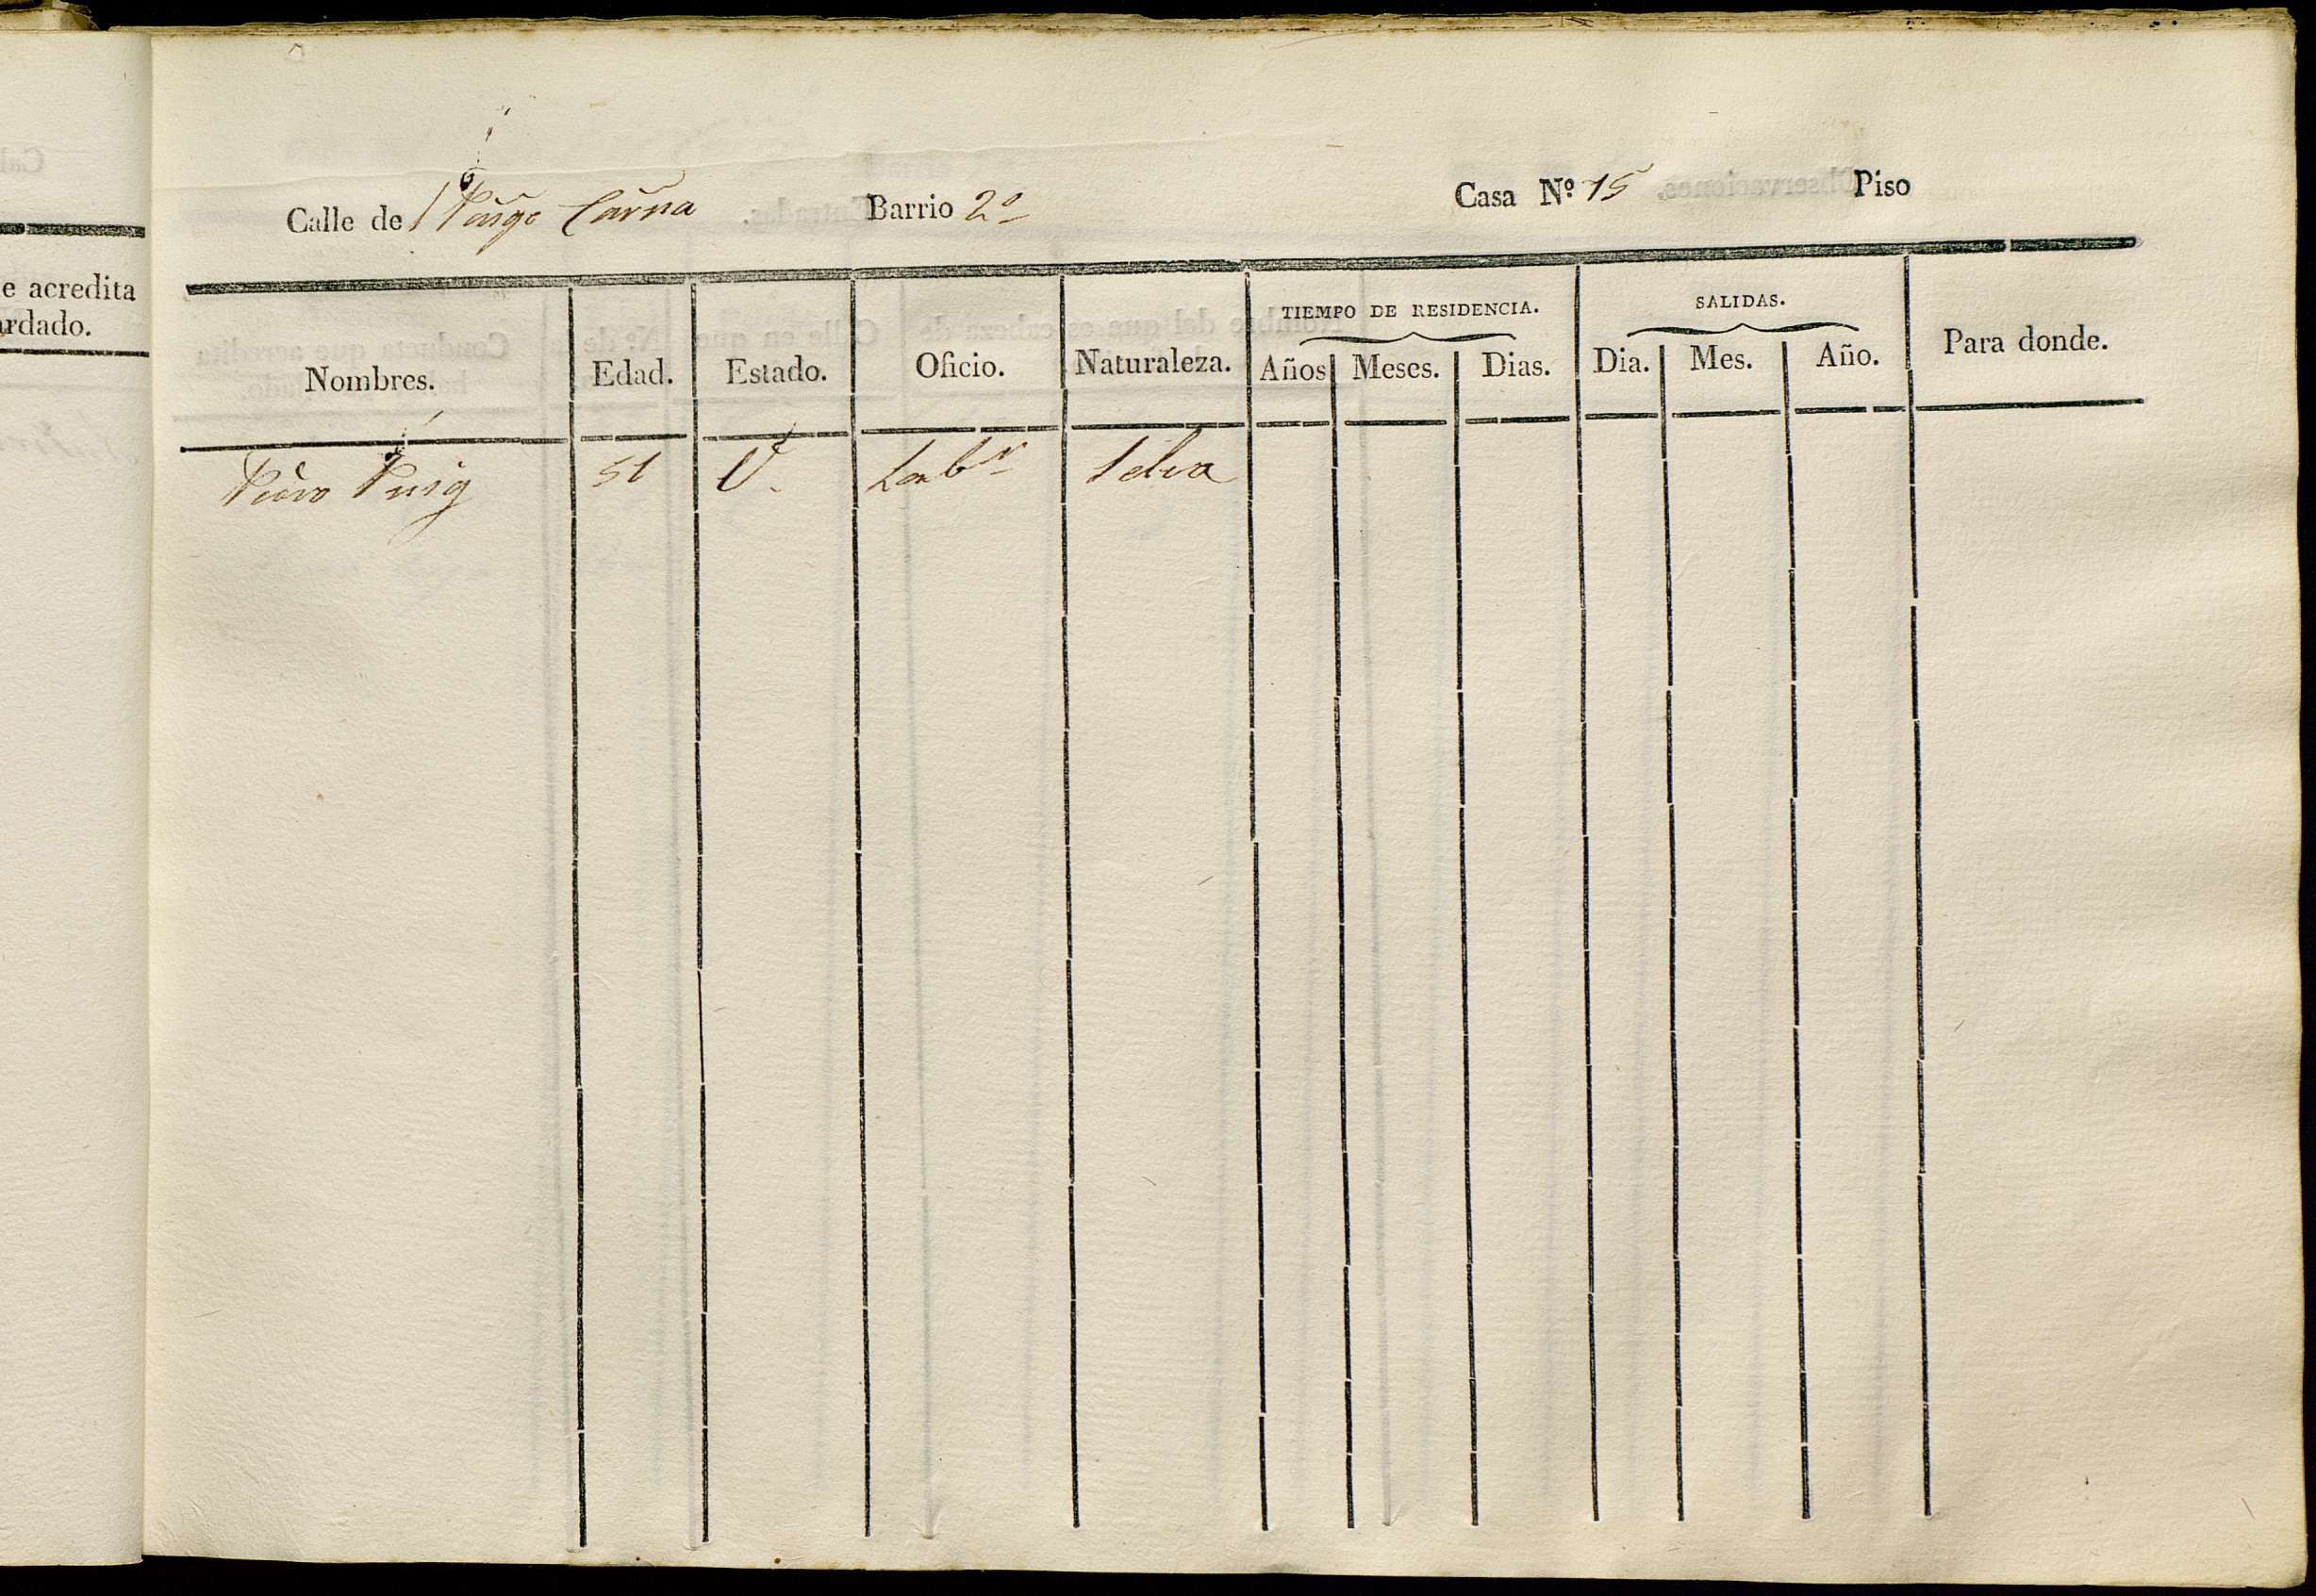 e acredita
ardado.
Calle de Puige Carna Barrio 2º Casa Nº 15 Piso
TIEMPO DE RESIDENCIA. SALIDAS.
Nombres. Edad. Estado. Oficio. Naturaleza. Años Meses. Dias. Dia. Mes. Año. Para donde.
Pedro Puig 51 V. Labr Selva